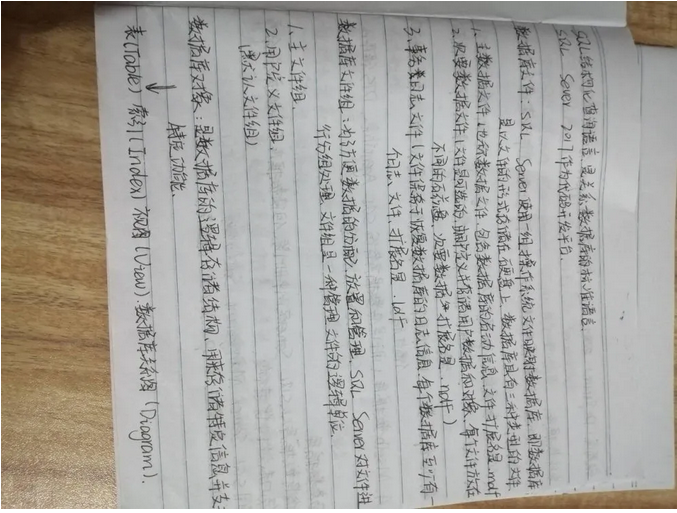 SQL结构化查询语言,是关系数据库的标准语言.
SQL Sever 2017作为代码开发平台.
数据库文件:SQL Server使用一组操作系统文件映射数据库.即数据库
是以文件的形式存储在硬盘上.数据库具有三种类型的文件.
1.主数据文件.也称数据文件.包含数据库的启动信息.文件扩展名是.mdf
2.次要数据文件(文件是可选的,由用户定义并存储用户数据和对象.每个文件放在
不同的磁盘.次要数据 扩展名是 .ndf)
3.事务日志文件(文件保存了恢复数据库的日志信息.每个数据库至少有一
个日志文件.扩展名是 .ldf
数据库文件组:为了方便数据的分配、放置和管理.SQL Sever对文件进
行分组处理.文件组是一种管理文件的逻辑单位.
1.主文件组.
2.用户定义文件组.
(默认文件组)
数据库对象:是数据库的逻辑存储结构、用来存储特定信息并支
特定功能.
表(Table) 索引(Index).视图(View).数据库关系图(Diagram).